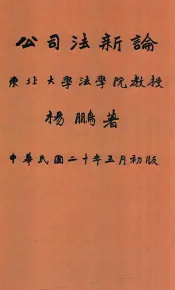 公司法新論
東北大學法學院教授
楊鵬著
中華民國二十年五月初版